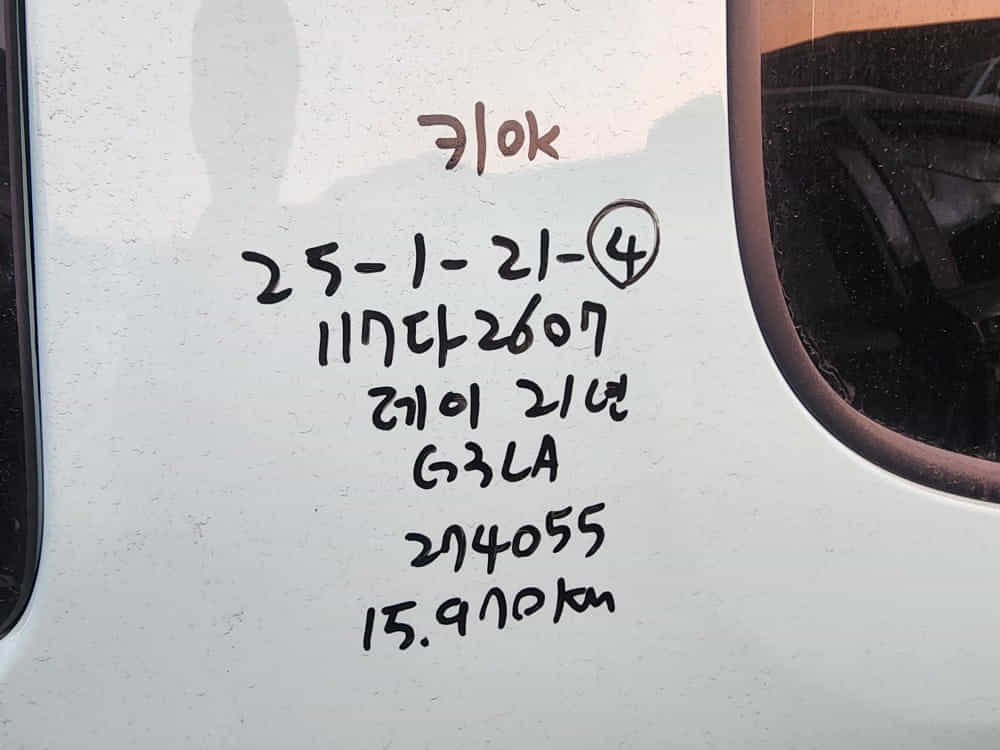 키OK
25-1-21-④
117다2607
레이 21년
G3LA
274055
15.970km